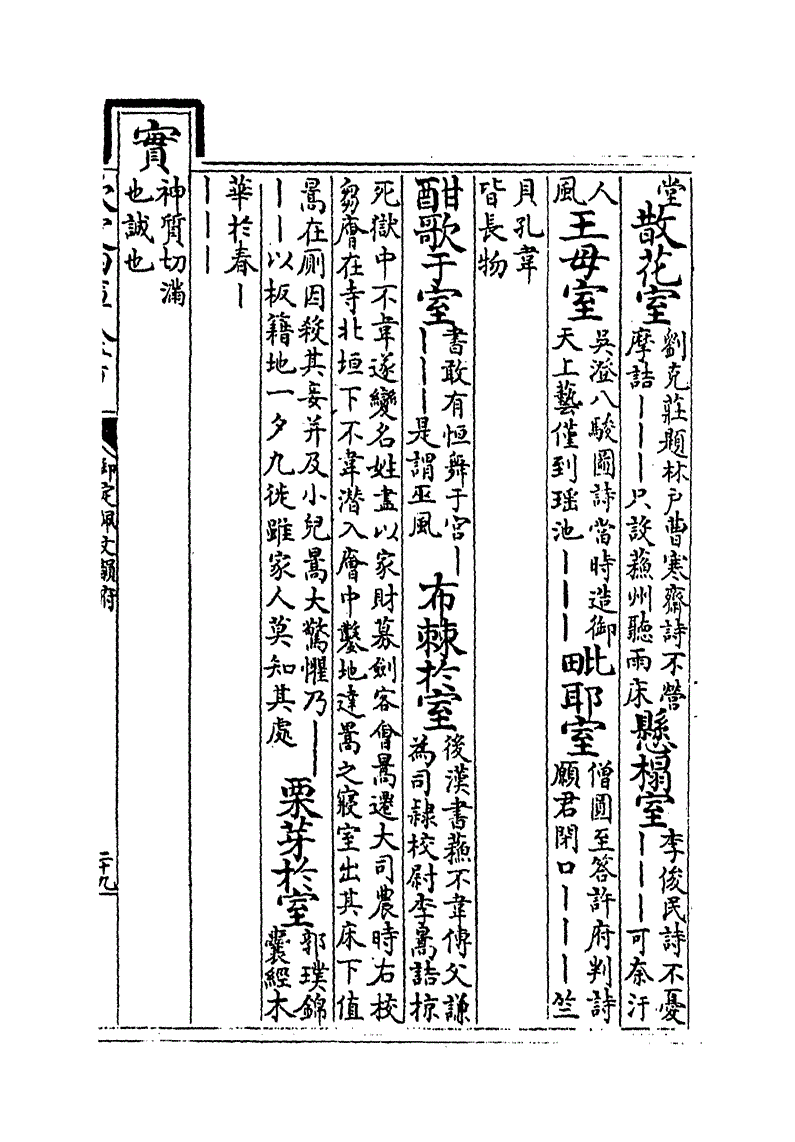 堂散花室劉克莊題林戶曹寒齋詩不營
摩詰丨丨丨只設蘇州聽雨床懸榻室李俊民詩不憂
丨丨丨可奈汙
人
風王母室吳澄八駿圖詩當時造御
天上藝僅到瑶池丨丨丨毗耶室僧圓至答許府判詩
願君閉口丨丨丨竺
貝孔韋
皆長物
酣歌于室書敢有恒舞于宮丨
丨丨丨是謂巫風布棘於室後漢書蘇不韋傳父謙
為司隷校尉李暠詰掠
死獄中不韋遂變名姓盡以家財募劍客㑹暠遷大司農時右校
芻廥在寺北垣下不韋潜入廥中鑿地達暠之寢室出其床下值
暠在厠因殺其妾并及小兒暠大驚懼乃丨丨
丨丨以板籍地一夕九徙雖家人莫知其處栗芽於室郭璞錦
囊經木
華於春丨
丨丨丨
實神質切滿
也誠也
御定佩文韻府
二十九